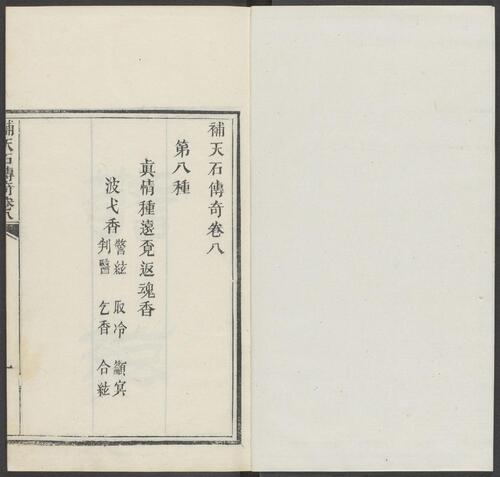 補天石傳奇卷八
第八種
真情種遠覓返魂香
波弋香
警絃 取冷 籲冥
判醫 乞香 合絃
補天石傳奇卷八
一